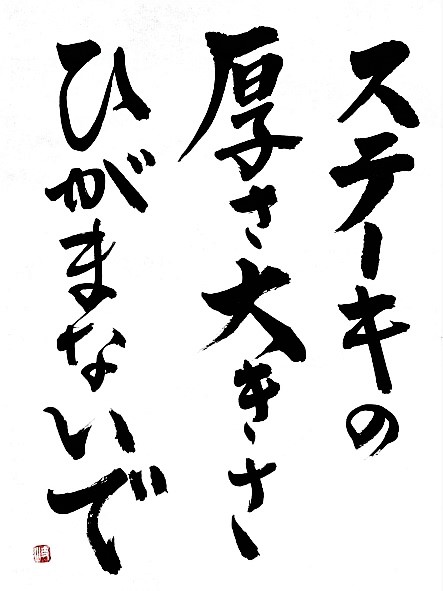 ステーキの
厚さ大きさ
ひがまないで